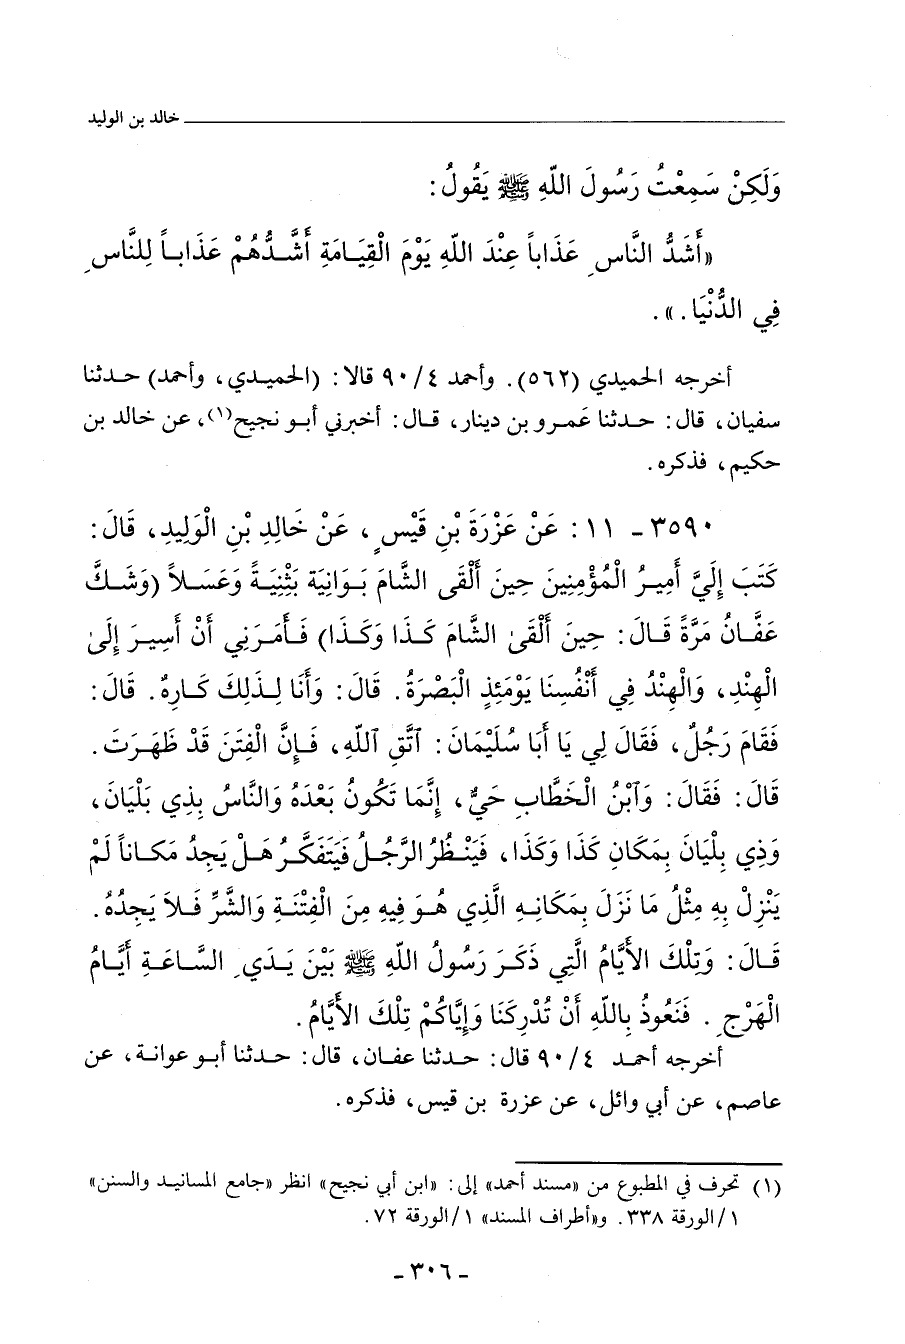 خالد بن الوليد
وَلَكِنْ سَمِعْتُ رَسُولَ اللّهِ ﷺ يَقُولُ:
«أَشَدُّ النَّاسِ عَذَاباً عِنْدَ اللّهِ يَوْمَ الْقِيَامَةِ أَشَدُّهُمْ عَذَاباً لِلنَّاسِ
فِي الدُّنْيَا.».
أخرجه الحميدي (٥٦٢). وأحمد ٤/ ٩٠ قالا: (الحميدي، وأحمد) حدثنا
سفيان، قال: حدثنا عَمرو بن دينار، قال: أخبرني أبو نجيح(١)، عن خالد بن
حكيم، فذكره.
٣٥٩٠ - ١١: عَنْ عَزْرَةَ بْنِ قَيْسٍ، عَنْ خَالِدِ بْنِ الْوَلِيدِ، قَالَ:
كَتَبَ إِلَيَّ أَمِيرُ الْمُؤْمِنِينَ حِينَ أَلْقَى الشَّامَ بَوَانِيَة بَثْنِيَةً وَعَسَلاً (وَشَكَّ
عَفَّانُ مَرَّةً قَالَ: حِينَ أَلْقَىٰ الشَّامَ كَذَا وَكَذَا) فَأَمَرَنِي أَنْ أَسِيرَ إِلَىٰ
الْهِنْدِ، وَالْهِنْدُ فِي أَنْفُسِنَا يَوْمَئِذٍ الْبَصْرَةُ. قَالَ: وَأَنَا لِذَلِكَ كَارِهٌ. قَالَ:
فَقَامَ رَجُلٌ، فَقَالَ لِي يَا أَبَا سُلَيْمَانَ: ٱتَّقِ ٱللّهِ، فَإِنَّ الْفِتَنَ قَدْ ظَهَرَتْ.
قَالَ: فَقَالَ: وَٱبْنُ الْخَطَّابِ حَيٌّ، إِنَّمَا تَكُونُ بَعْدَهُ وَالنَّاسُ بِذِي بَلْيَانَ،
وَذِي بِلْيَانَ بِمَكَانِ كَذَا وَكَذَا، فَيَنْظُرُ الرَّجُلُ فَيَتَفَكَّرُ هَلْ يَجِدُ مَكَاناً لَمْ
يَنْزِلْ بِهِ مِثْلُ مَا نَزَلَ بِمَكَانِهِ الَّذِي هُوَ فِيهِ مِنَ الْفِتْنَةِ وَالشَّرِّ فَلاَ يَجِدُهُ.
قَالَ: وَتِلْكَ الأَيَّامُ الَّتِي ذَكَرَ رَسُولُ اللّهِ ﷺ بَيْنَ يَدَيِ السَّاعَةِ أَيَّامُ
الْهَرْجِ. فَنَعُوذُ بِاللّهِ أَنْ تُدْرِكَنَا وَإِيَّاكُمْ تِلْكَ الأَيَّامُ.
أخرجه أحمد ٤/ ٩٠ قال: حدثنا عفان، قال: حدثنا أبو عوانة، عن
عاصم، عن أبي وائل، عن عزرة بن قيس، فذكره.
(١) تحرف في المطبوع من «مسند أحمد» إلى: «ابن أبي نجيح» انظر «جامع المسانيد والسنن»
١/الورقة ٣٣٨. و«أطراف المسند» ١/الورقة ٧٢.
- ٣٠٦ -